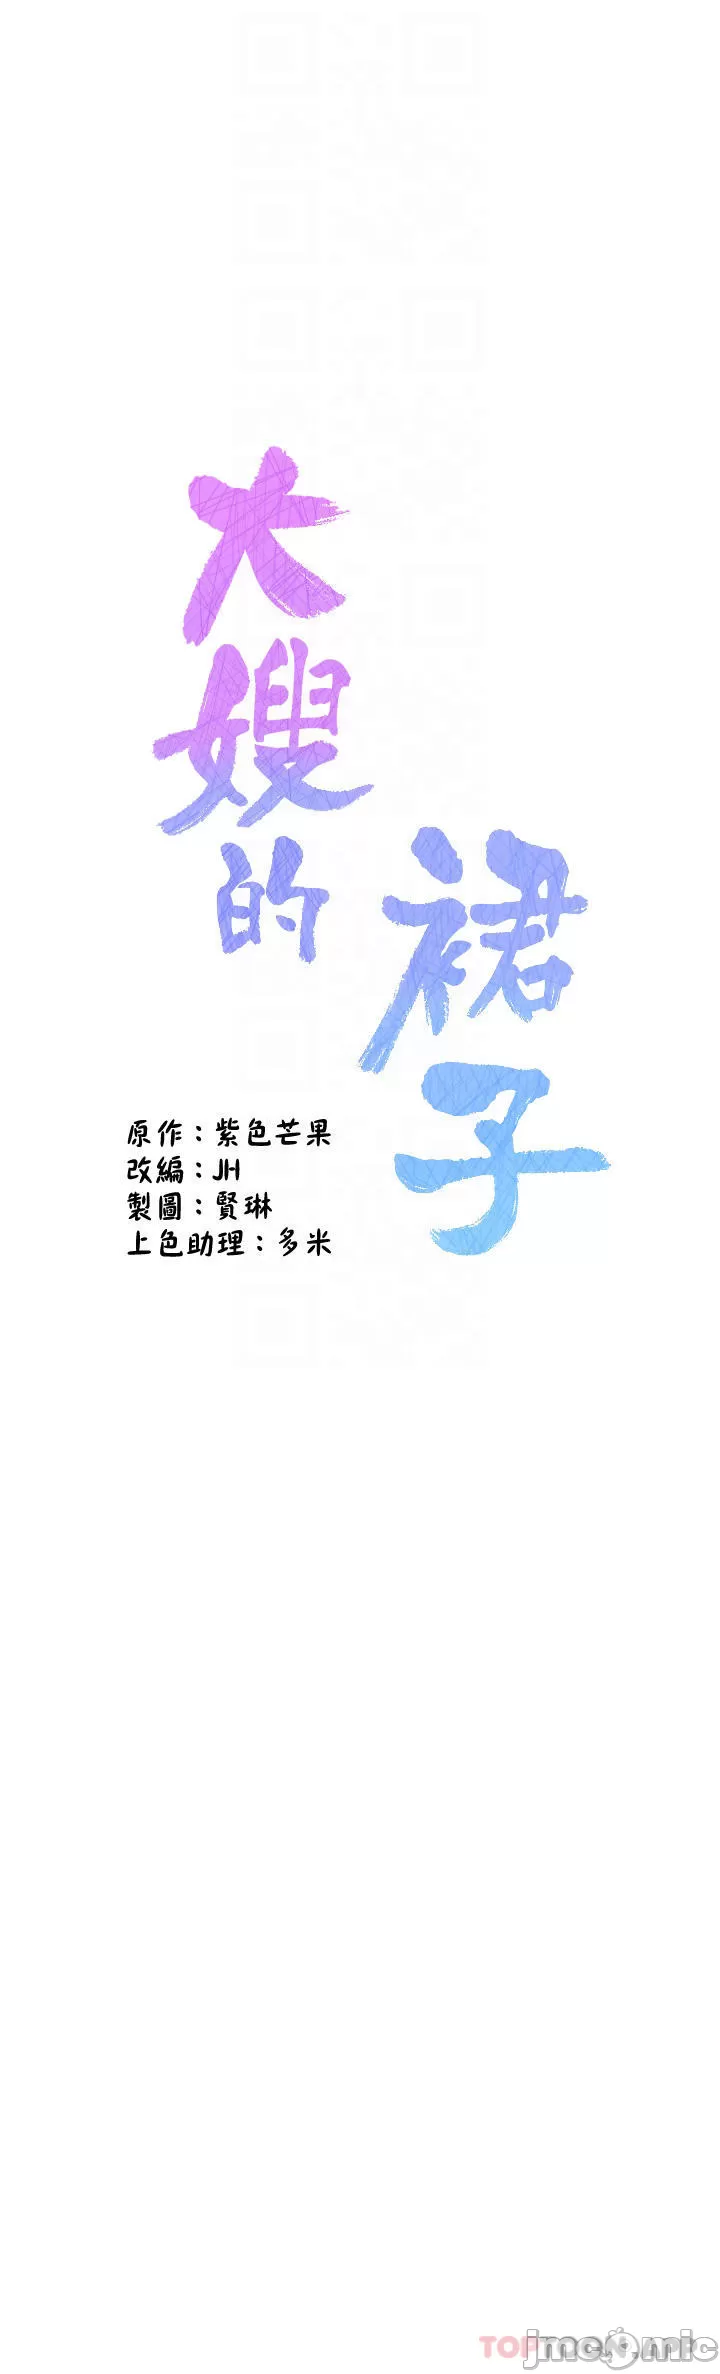 大嫂的
裙子
原作：紫色芒果
改編：JH
製圖：賢琳
上色助理：多米